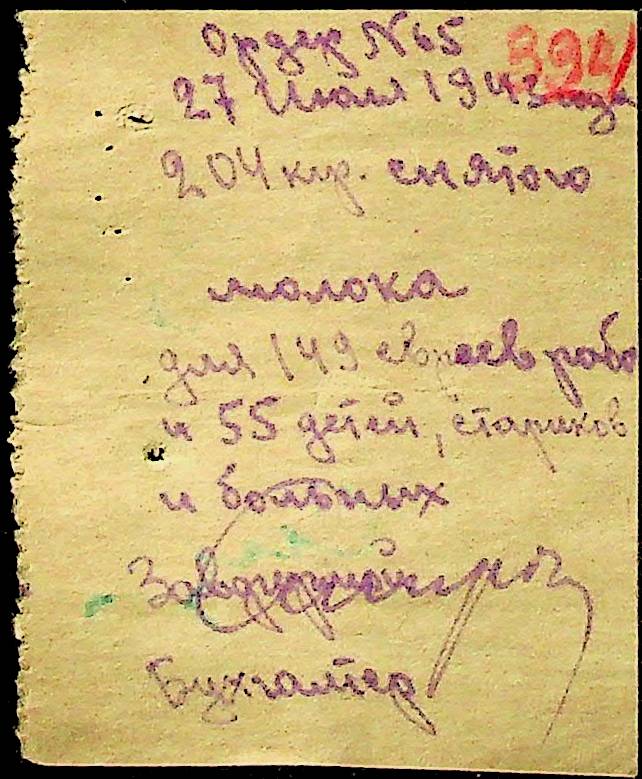 Ордер N 65
394
27 Июля 1943 года
204 кгр. снятого
молока
для 149 евреев рабо
и 55 детей, стариков
и больных
Бухгалтер